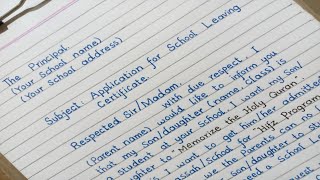 The Principal,
(Your School name)
(Your School address)
Subject: Application for School Leaving
Certificate.
Respected Sir/Madam,
With due respect, I
(Parent name) would like to inform you
that my son/daughter (name, Class) is
a student at your school. I want my Son/
to "Memorize the Holy Quran".
I want to get him/her admitted
"Hifz Program
we the Parents
can no
son/daughter to
a School Lea